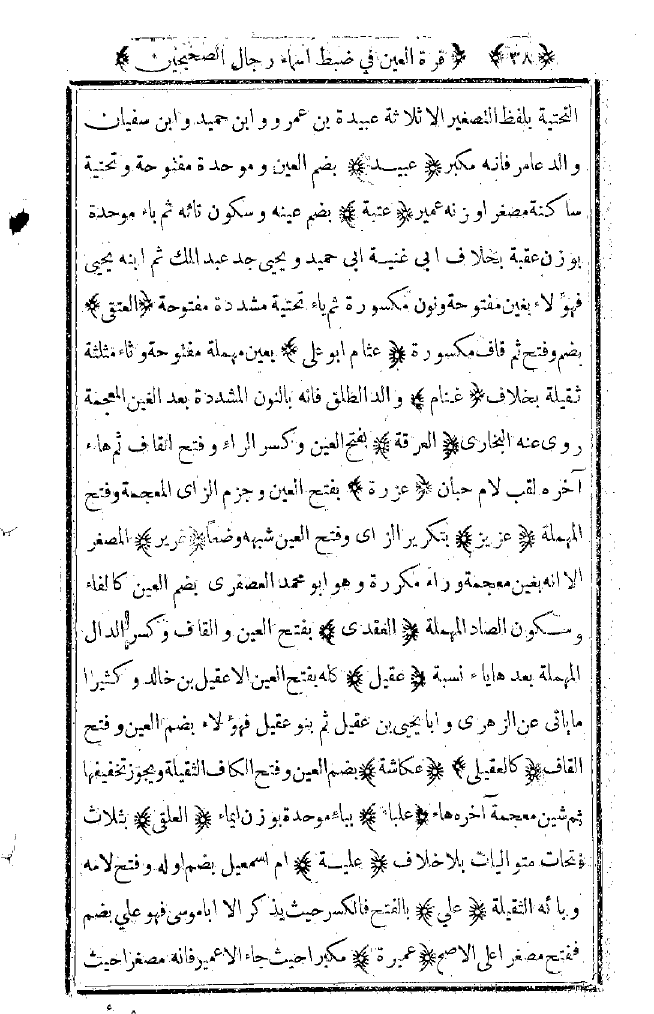 ﴿ ٣٨ ﴾ ﴿ قرة العين في ضبط اسماء رجال الصحيحين ﴾
التحتية بلفظ التصغير الا ثلاثة عبيدة بن عمرو وابن حميد وابن سفيان
والد عامر فانه مكبر ﴿ عبيد ﴾ بضم العين وموحدة مفتوحة وتحتية
ساكنة مصغر اوزنه عمير ﴿ عتبة ﴾ بضم عينه وسكون تائه ثم باء موحدة
بوزن عقبة بخلاف ابي غنية ابي حميد ويحيى جد عبد الملك ثم ابنه يحيى
فهؤلاء بغين مفتوحة ونون مكسورة ثم ياء تحتية مشددة مفتوحة ﴿ العتقي ﴾
بضم وفتح ثم قاف مكسورة ﴿ عثام ابو علي ﴾ بعين مهملة مفتوحة وثاء مثلثة
ثقيلة بخلاف ﴿ غنام ﴾ والد الطلق فانه بالنون المشددة بعد الغين المعجمة
روى عنه البخاري ﴿ العرقة ﴾ بفتح العين وكسر الراء وفتح القاف ثم هاء
آخره لقب لام حبان ﴿ عزرة ﴾ بفتح العين وجزم الزاى المعجمة وفتح
المهملة ﴿ عزيز ﴾ بتكرير الزاى وفتح العين شبهه وضعا ﴿ غرير ﴾ المصغر
الا انه بغين معجمة وراء مكررة وهو ابو محمد العصفرى بضم العين كالفاء
وسكون الصاد المهملة ﴿ العقدى ﴾ بفتح العين والقاف وكسر الدال
المهملة بعدها ياء نسبة ﴿ عقيل ﴾ كله بفتح العين الا عقيل بن خالد وكثيرا
ما ياتى عن الزهرى وابا يحيى بن عقيل ثم بنو عقيل فهؤلاء بضم العين وفتح
القاف ﴿ كالعقيلى ﴾ ﴿ عكاشة ﴾ بضم العين وفتح الكاف الثقيلة ويجوز تخفيفها
ثم شين معجمة آخره هاء ﴿ علباء ﴾ بباء موحدة بوزن ايماء ﴿ العلقى ﴾ بثلاث
فتحات متواليات بلاخلاف ﴿ علية ﴾ ام اسمعيل بضم اوله وفتح لامه
ويائه الثقيلة ﴿ علي ﴾ بالفتح فالكسر حيث يذكر الا اباموسى فهو علي بضم
ففتح مصغرا على الاصح ﴿ عميرة ﴾ مكبرا حيث جاء الا عمير فانه مصغرا حيث